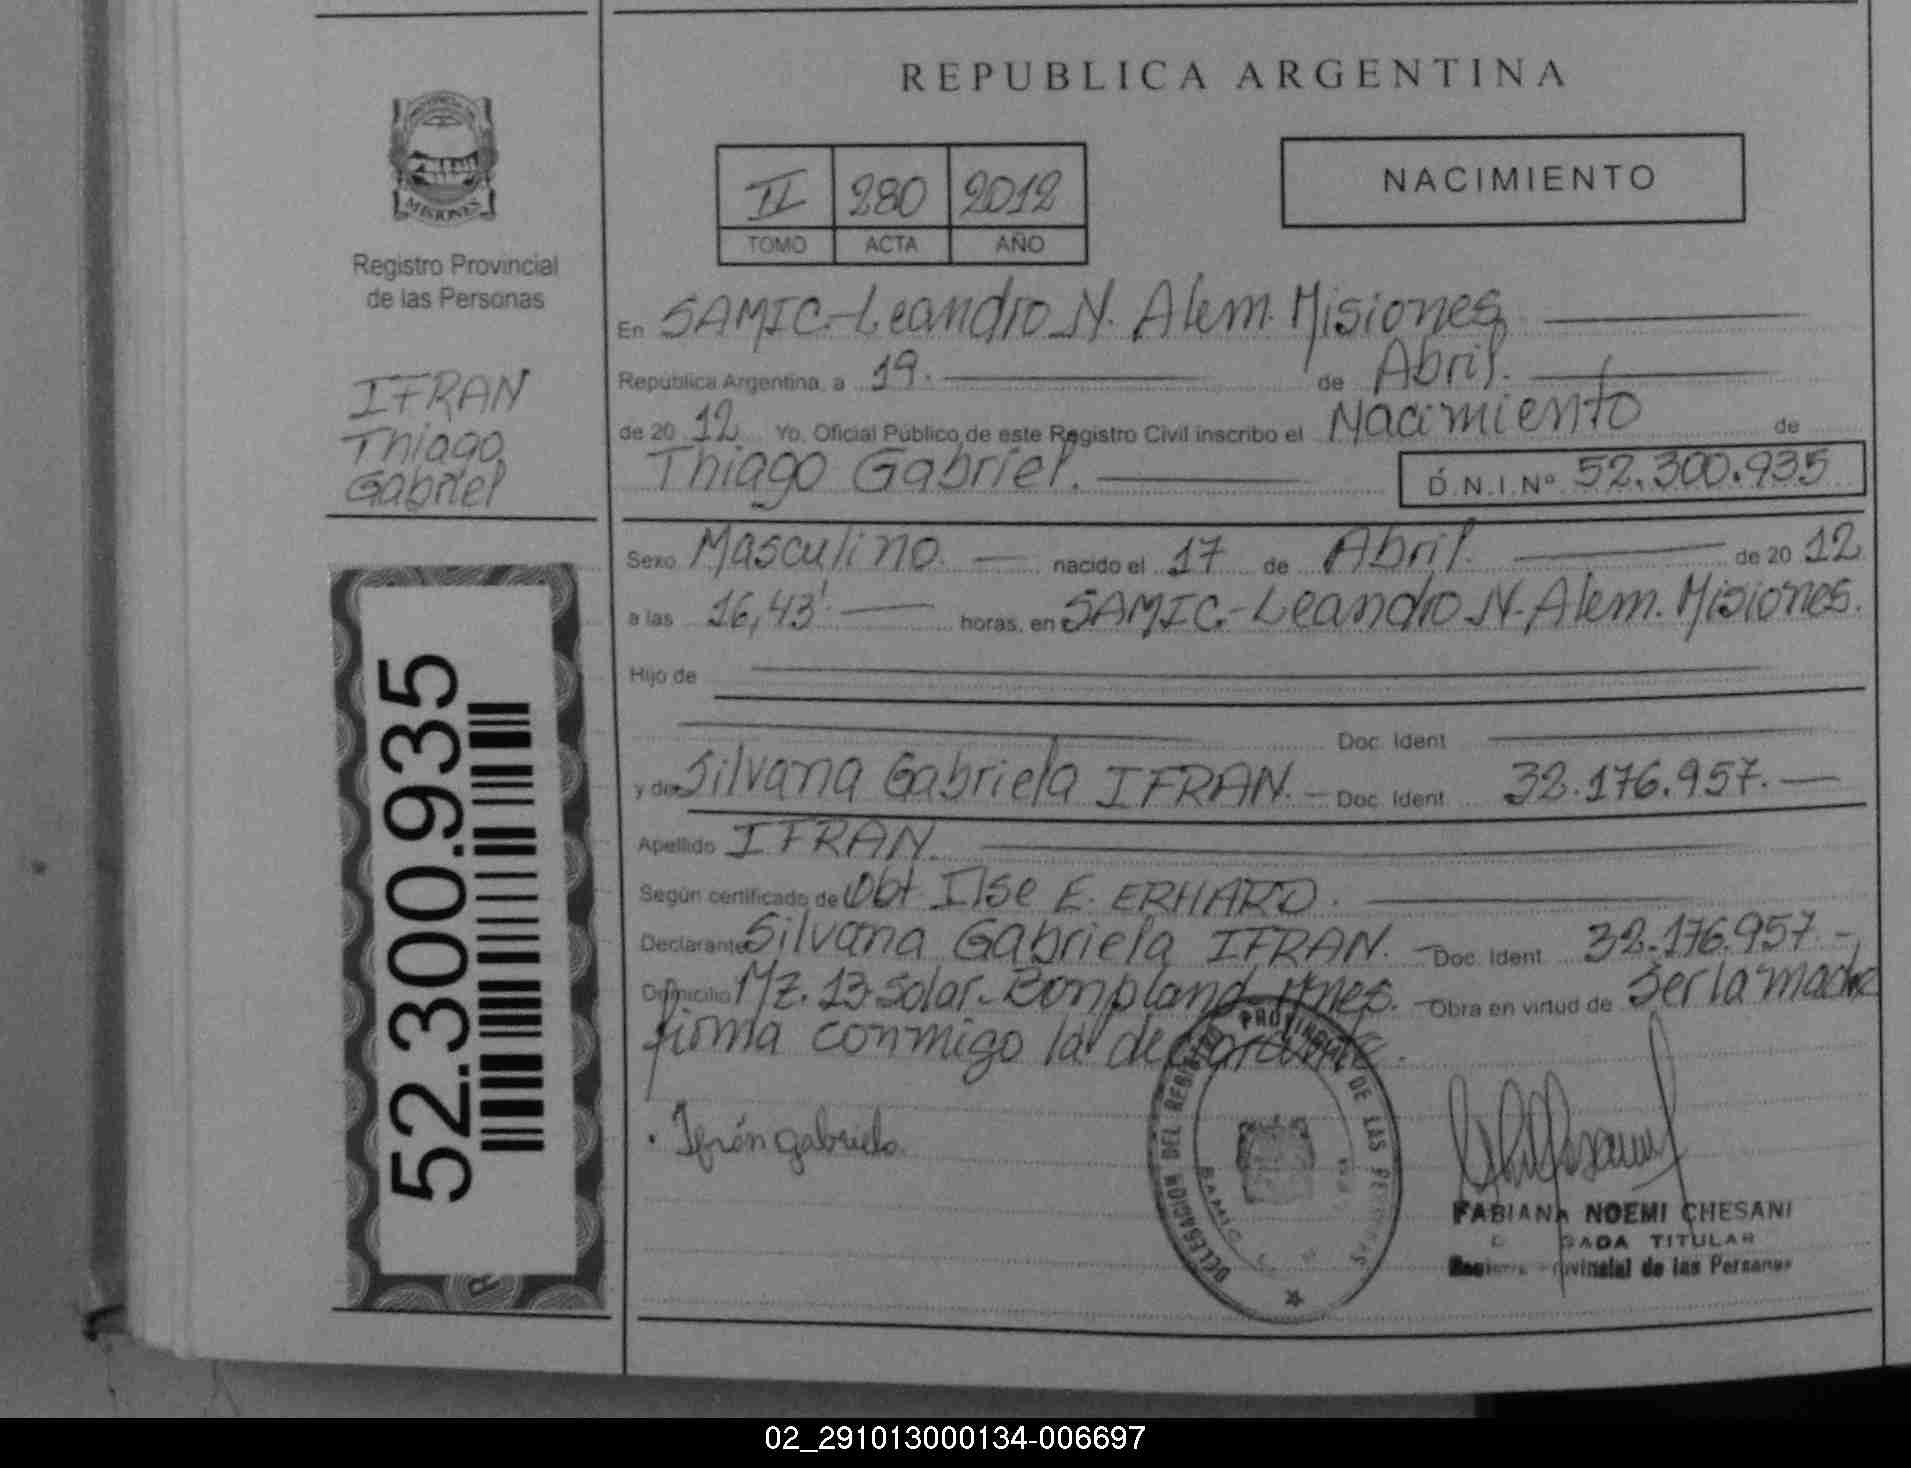 REPUBLICA ARGENTINA
MISIONES
Registro Provincial
de las Personas
II 280 2012
TOMO ACTA AÑO
NACIMIENTO
IFRAN
Thiago
Gabriel
En SAMIC.-Leandro N. Alem. Misiones
República Argentina, a 19. de Abril.
de 20 12 Yo, Oficial Público de este Registro Civil inscribo el Nacimiento de
Thiago Gabriel. D.N.I.Nº 52.300.935
Sexo Masculino. nacido el 17 de Abril. de 20 12
a las 16,43' horas, en SAMIC.-Leandro N. Alem. Misiones.
Hijo de
Doc. Ident
y de Silvana Gabriela IFRAN. Doc. Ident 32.176.957.
Apellido IFRAN.
Según certificado de Obt Ilse E. ERHARD.
Declarante Silvana Gabriela IFRAN. Doc. Ident 32.176.957
Domicilio Mz. 13 Solar. Bonpland Mnes. Obra en virtud de Ser la madre
firma conmigo la declarante.
Ifrán gabriela
52.300.935
DELEGACION DEL REGISTRO PROVINCIAL DE LAS PERSONAS
SAMIC
FABIANA NOEMI CHESANI
TITULAR
Provincial de las Personas
02_291013000134-006697